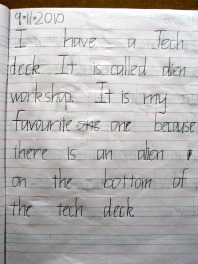 9.11.2010
I have a Tech
deck. It is called alien
workshop. It is my
favourite one one because
there is an alien
on the bottom of
the tech deck.